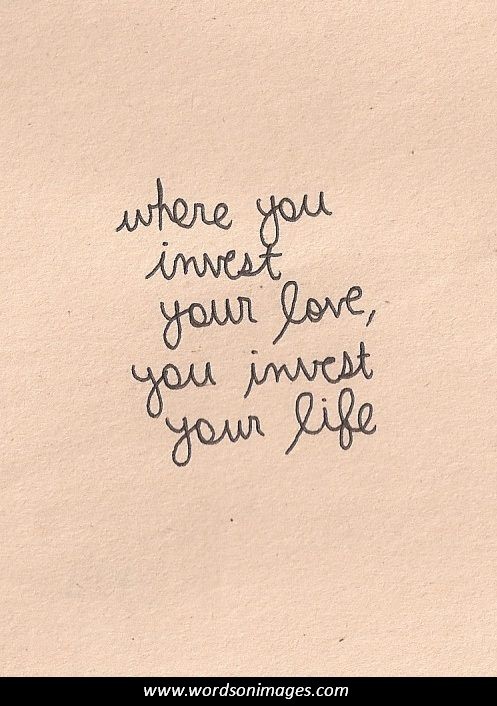 where you
invest
your love,
you invest
your life
www.wordsonimages.com